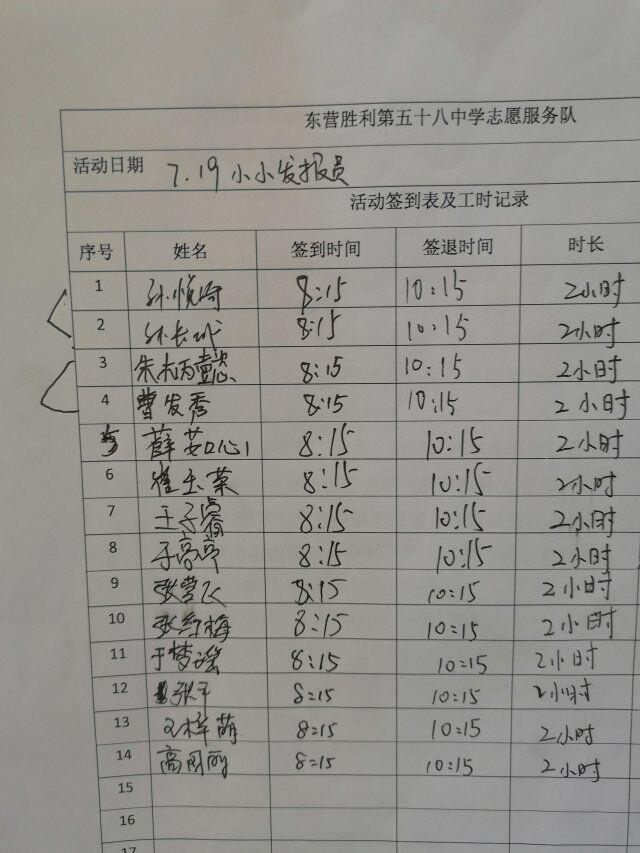 东营胜利第五十八中学志愿服务队
活动日期 7.19 小小发报员
活动签到表及工时记录
序号 姓名 签到时间 签退时间 时长
1 孙悦琦 8:15 10:15 2小时
2 孙长武 8:15 10:15 2小时
3 8:15 10:15 2小时
4 曹发秀 8:15 10:15 2小时
5 薛若心 8:15 10:15 2小时
6 崔玉荣 8:15 10:15 2小时
7 王子睿 8:15 10:15 2小时
8 于亭亭 8:15 10:15 2小时
9 张莹飞 8:15 10:15 2小时
10 张红梅 8:15 10:15 2小时
11 于梦瑶 8:15 10:15 2小时
12 张平 8:15 10:15 2小时
13 王梓萌 8:15 10:15 2小时
14 高丽 8:15 10:15 2小时
15
16
17